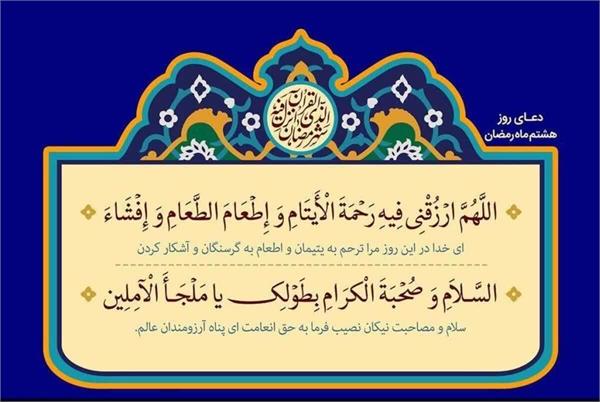 شهر رمضان الذی انزل فیه القرآن
دعـای روز
هشتم ماه رمضان
اللَّهُمَّ ارْزُقْنِی فِیهِ رَحْمَةَ الْأَیتَامِ وَ إِطْعَامَ الطَّعَامِ وَ إِفْشَاءَ
ای خدا در این روز مرا ترحم به یتیمان و اطعام به گرسنگان و آشکار کردن
السَّلاَمِ وَ صُحْبَةَ الْکِرَامِ بِطَوْلِکَ یا مَلْجَأَ الْآمِلِین
سلام و مصاحبت نیکان نصیب فرما به حق انعامت ای پناه آرزومندان عالم.